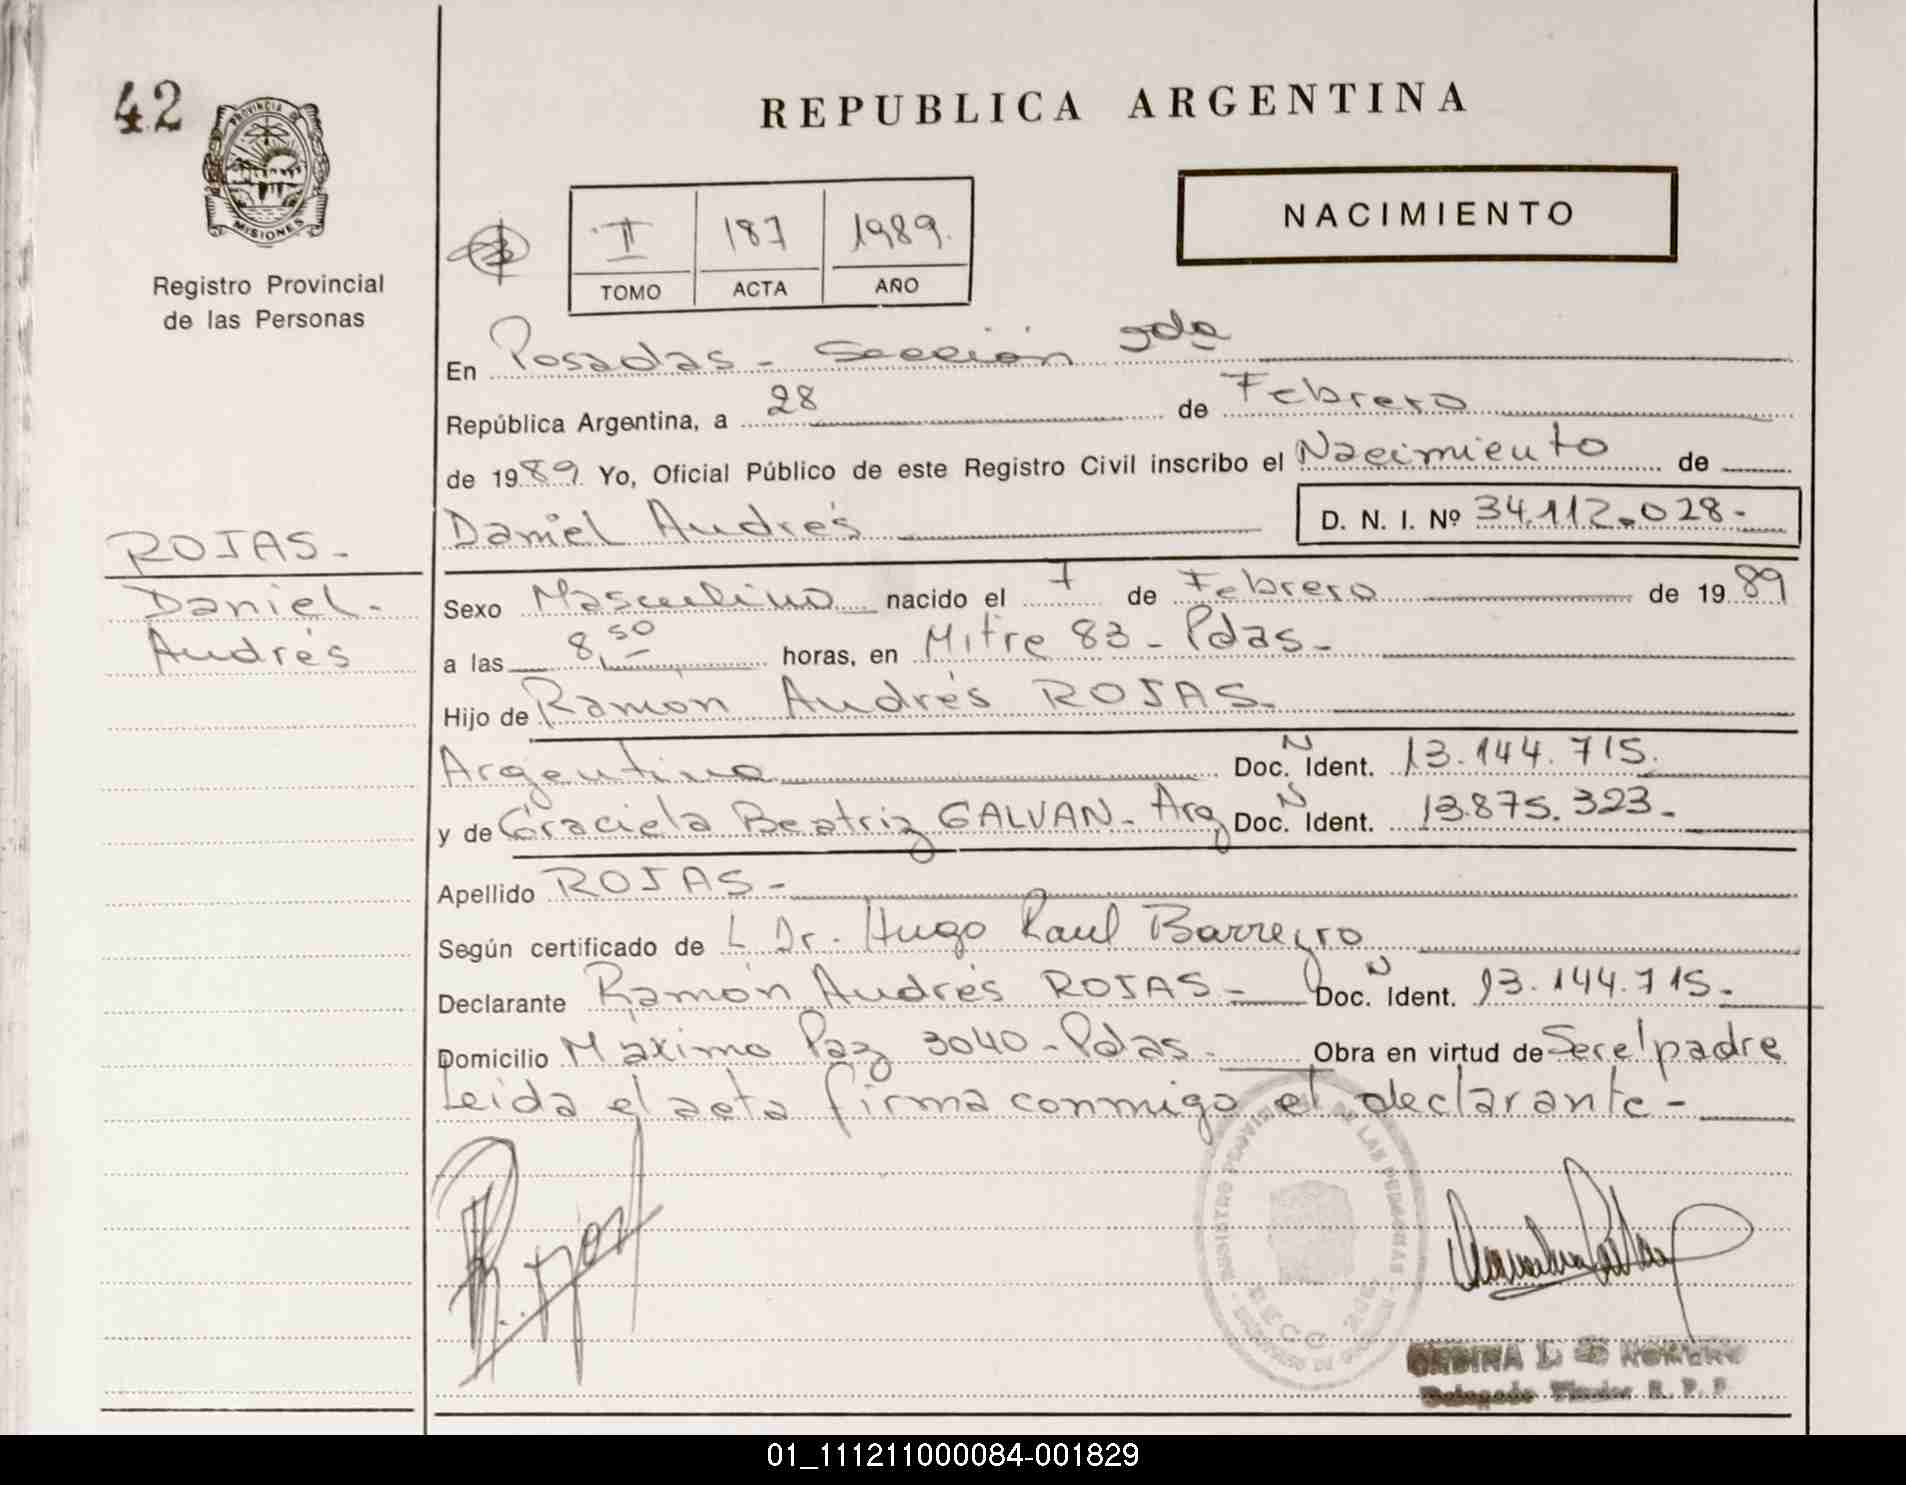 42
PROVINCIA DE
MISIONES
Registro Provincial
de las Personas
REPUBLICA ARGENTINA
NACIMIENTO
II 187 1989.
TOMO ACTA AÑO
En Posadas - Sección 2da
República Argentina, a 28 de Febrero
de 1989 Yo, Oficial Público de este Registro Civil inscribo el Nacimiento de
Daniel Andrés D. N. I. Nº 34.112.028-
ROJAS-
Daniel-
Andrés
Sexo Masculino nacido el 7 de Febrero de 1989
a las 8,50 horas, en Mitre 83 - Pdas-
Hijo de Ramón Andrés ROJAS-
Argentino Doc. N Ident. 13.144.715.
y de Graciela Beatriz GALVAN- Arg Doc. N Ident. 13.875.323-
Apellido ROJAS-
Según certificado de L Dr. Hugo Raul Barreyro
Declarante Ramón Andrés ROJAS- Doc. N Ident. 13.144.715-
Domicilio Máximo Paz 3040-Pdas- Obra en virtud de Ser el padre
Leida el acta firma conmigo el declarante-
REGISTRO PROVINCIAL DE LAS PERSONAS
R. P. P.
01_111211000084-001829